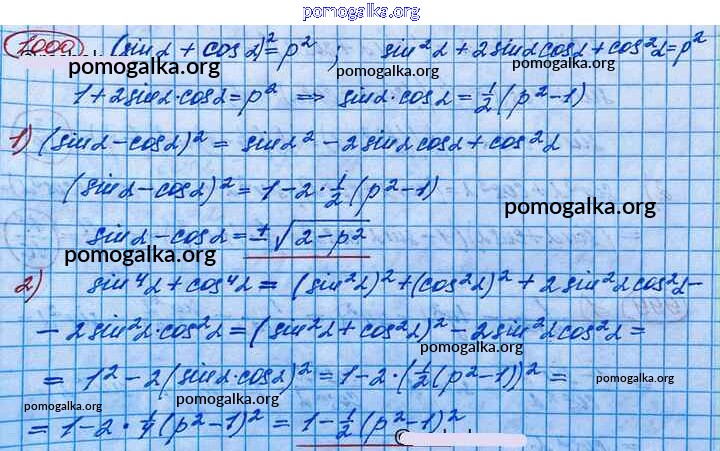 pomogalka.org
1000 (sin α + cos α)² = p² ; sin²α + 2 sin α cos α + cos²α = p²
pomogalka.org pomogalka.org
1 + 2 sin α · cos α = p² ⇒ sin α · cos α = ½ (p² − 1)
1) (sin α − cos α)² = sin α² − 2 sin α cos α + cos²α
(sin α − cos α)² = 1 − 2 · ½ (p² − 1)
pomogalka.org
sin α − cos α = ± √(2 − p²)
pomogalka.org
2) sin⁴α + cos⁴α = (sin²α)² + (cos²α)² + 2 sin²α cos²α −
pomogalka.org
− 2 sin²α · cos²α = (sin²α + cos²α)² − 2 sin²α cos²α =
pomogalka.org
= 1² − 2 (sin α · cos α)² = 1 − 2 · (½ (p² − 1))² =
pomogalka.org pomogalka.org
= 1 − 2 · ¼ (p² − 1)² = 1 − ½ (p² − 1)²